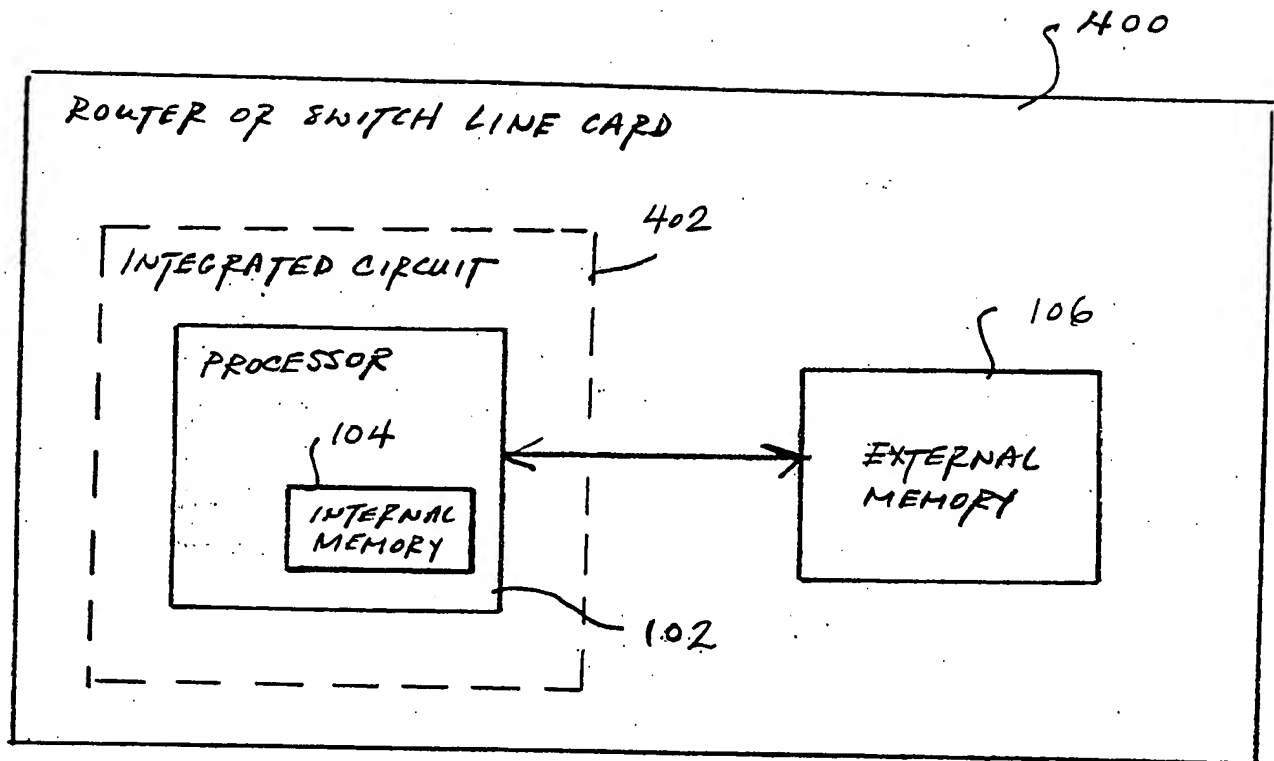 400
ROUTER OR SWITCH LINE CARD
402
INTEGRATED CIRCUIT
106
PROCESSOR
104
EXTERNAL
MEMORY
INTERNAL
MEMORY
102